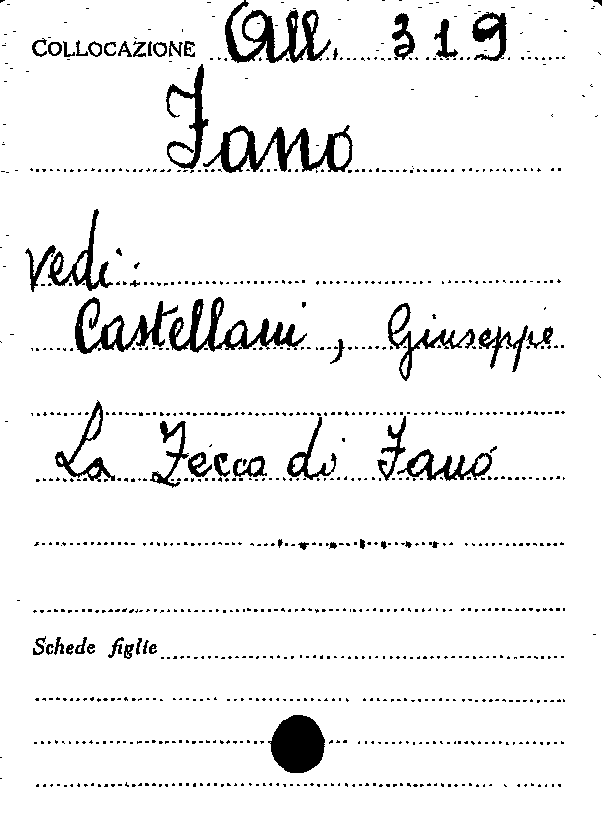 COLLOCAZIONE All. 319
Fano
vedi:
Castellani, Giuseppe
La Zecca di Fano
.......
Schede figlie